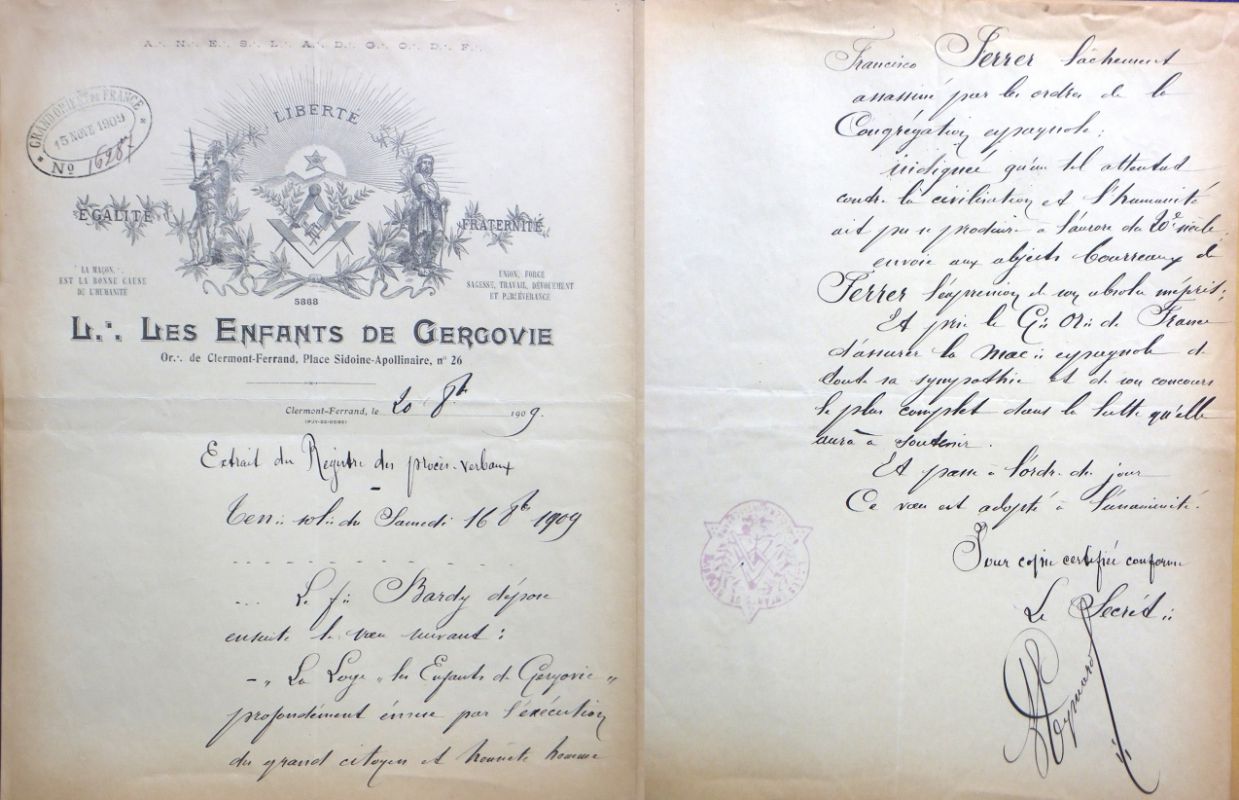 A∴ N∴ E∴ S∴ L∴ A∴ D∴ G∴ O∴ D∴ F∴
GRAND ORIENT DE FRANCE
15 NOVE 1909
No 16287
LIBERTÉ
ÉGALITÉ
FRATERNITÉ
LA MAÇON∴
EST LA BONNE CAUSE
DE L'HUMANITÉ
UNION, FORCE
SAGESSE, TRAVAIL, DÉVOUEMENT
ET PERSÉVÉRANCE
5868
L∴ LES ENFANTS DE GERGOVIE
Or∴ de Clermont-Ferrand, Place Sidoine-Apollinaire, n° 26
Clermont-Ferrand, le 20 8bre 1909.
(PUY-DE-DOME)
Extrait du Registre des procès-verbaux
Ten∴ sol∴ du Samedi 16 8bre 1909
. . . . . . . . . . . .
... Le f∴ Bardy dépose
ensuite le vœu suivant :
– " La Loge " les Enfants de Gergovie "
profondément émue par l'exécution
du grand citoyen et honnête homme
Francisco Ferrer lâchement
assassiné par les ordres de la
Congrégation espagnole ;
indignée qu'un tel attentat
contre la civilisation et l'humanité
ait pu se produire à l'aurore du 20e siècle
envoie aux abjects bourreaux de
Ferrer l'expression de son absolu mépris ;
Et prie le G∴ Or∴ de France
d'assurer la Mac∴ espagnole de
toute sa sympathie et de son concours
le plus complet dans la lutte qu'elle
aura à soutenir.
Et passe à l'ordre du jour
Ce vœu est adopté à l'unanimité.
Pour copie certifiée conforme
Le Secrét∴